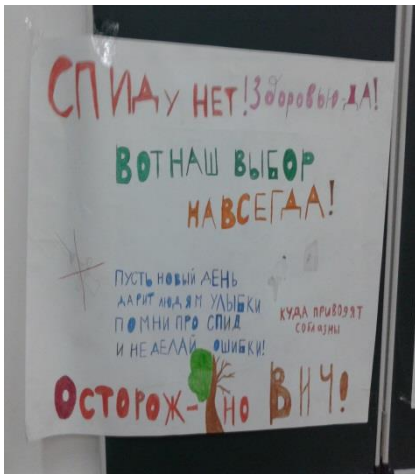 СПИДУ НЕТ! Здоровью-ДА!
ВОТ НАШ ВЫБОР
НАВСЕГДА!
ПУСТЬ НОВЫЙ ДЕНЬ
ДАРИТ ЛЮДЯМ УЛЫБКИ
ПОМНИ ПРО СПИД
И НЕ ДЕЛАЙ ОШИБКИ!
КУДА ПРИВОДЯТ
СОБЛАЗНЫ
ОСТОРОЖ-НО ВИЧ!